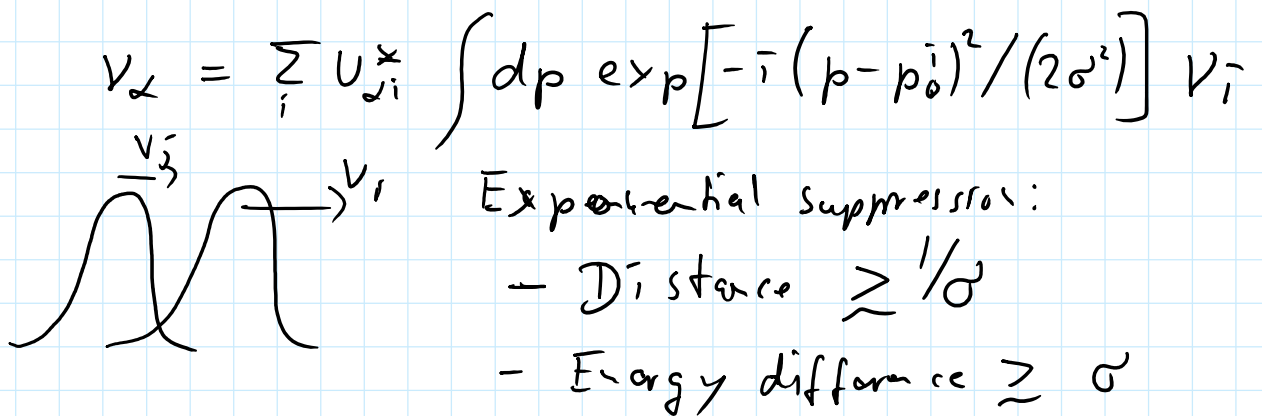 ν_α = Σ_i U*_αi ∫ dp exp[-i(p-p_0^i)²/(2σ²)] ν_i
ν_3
ν_1
Exponential suppression:
- Distance ≳ 1/σ
- Energy difference ≳ σ